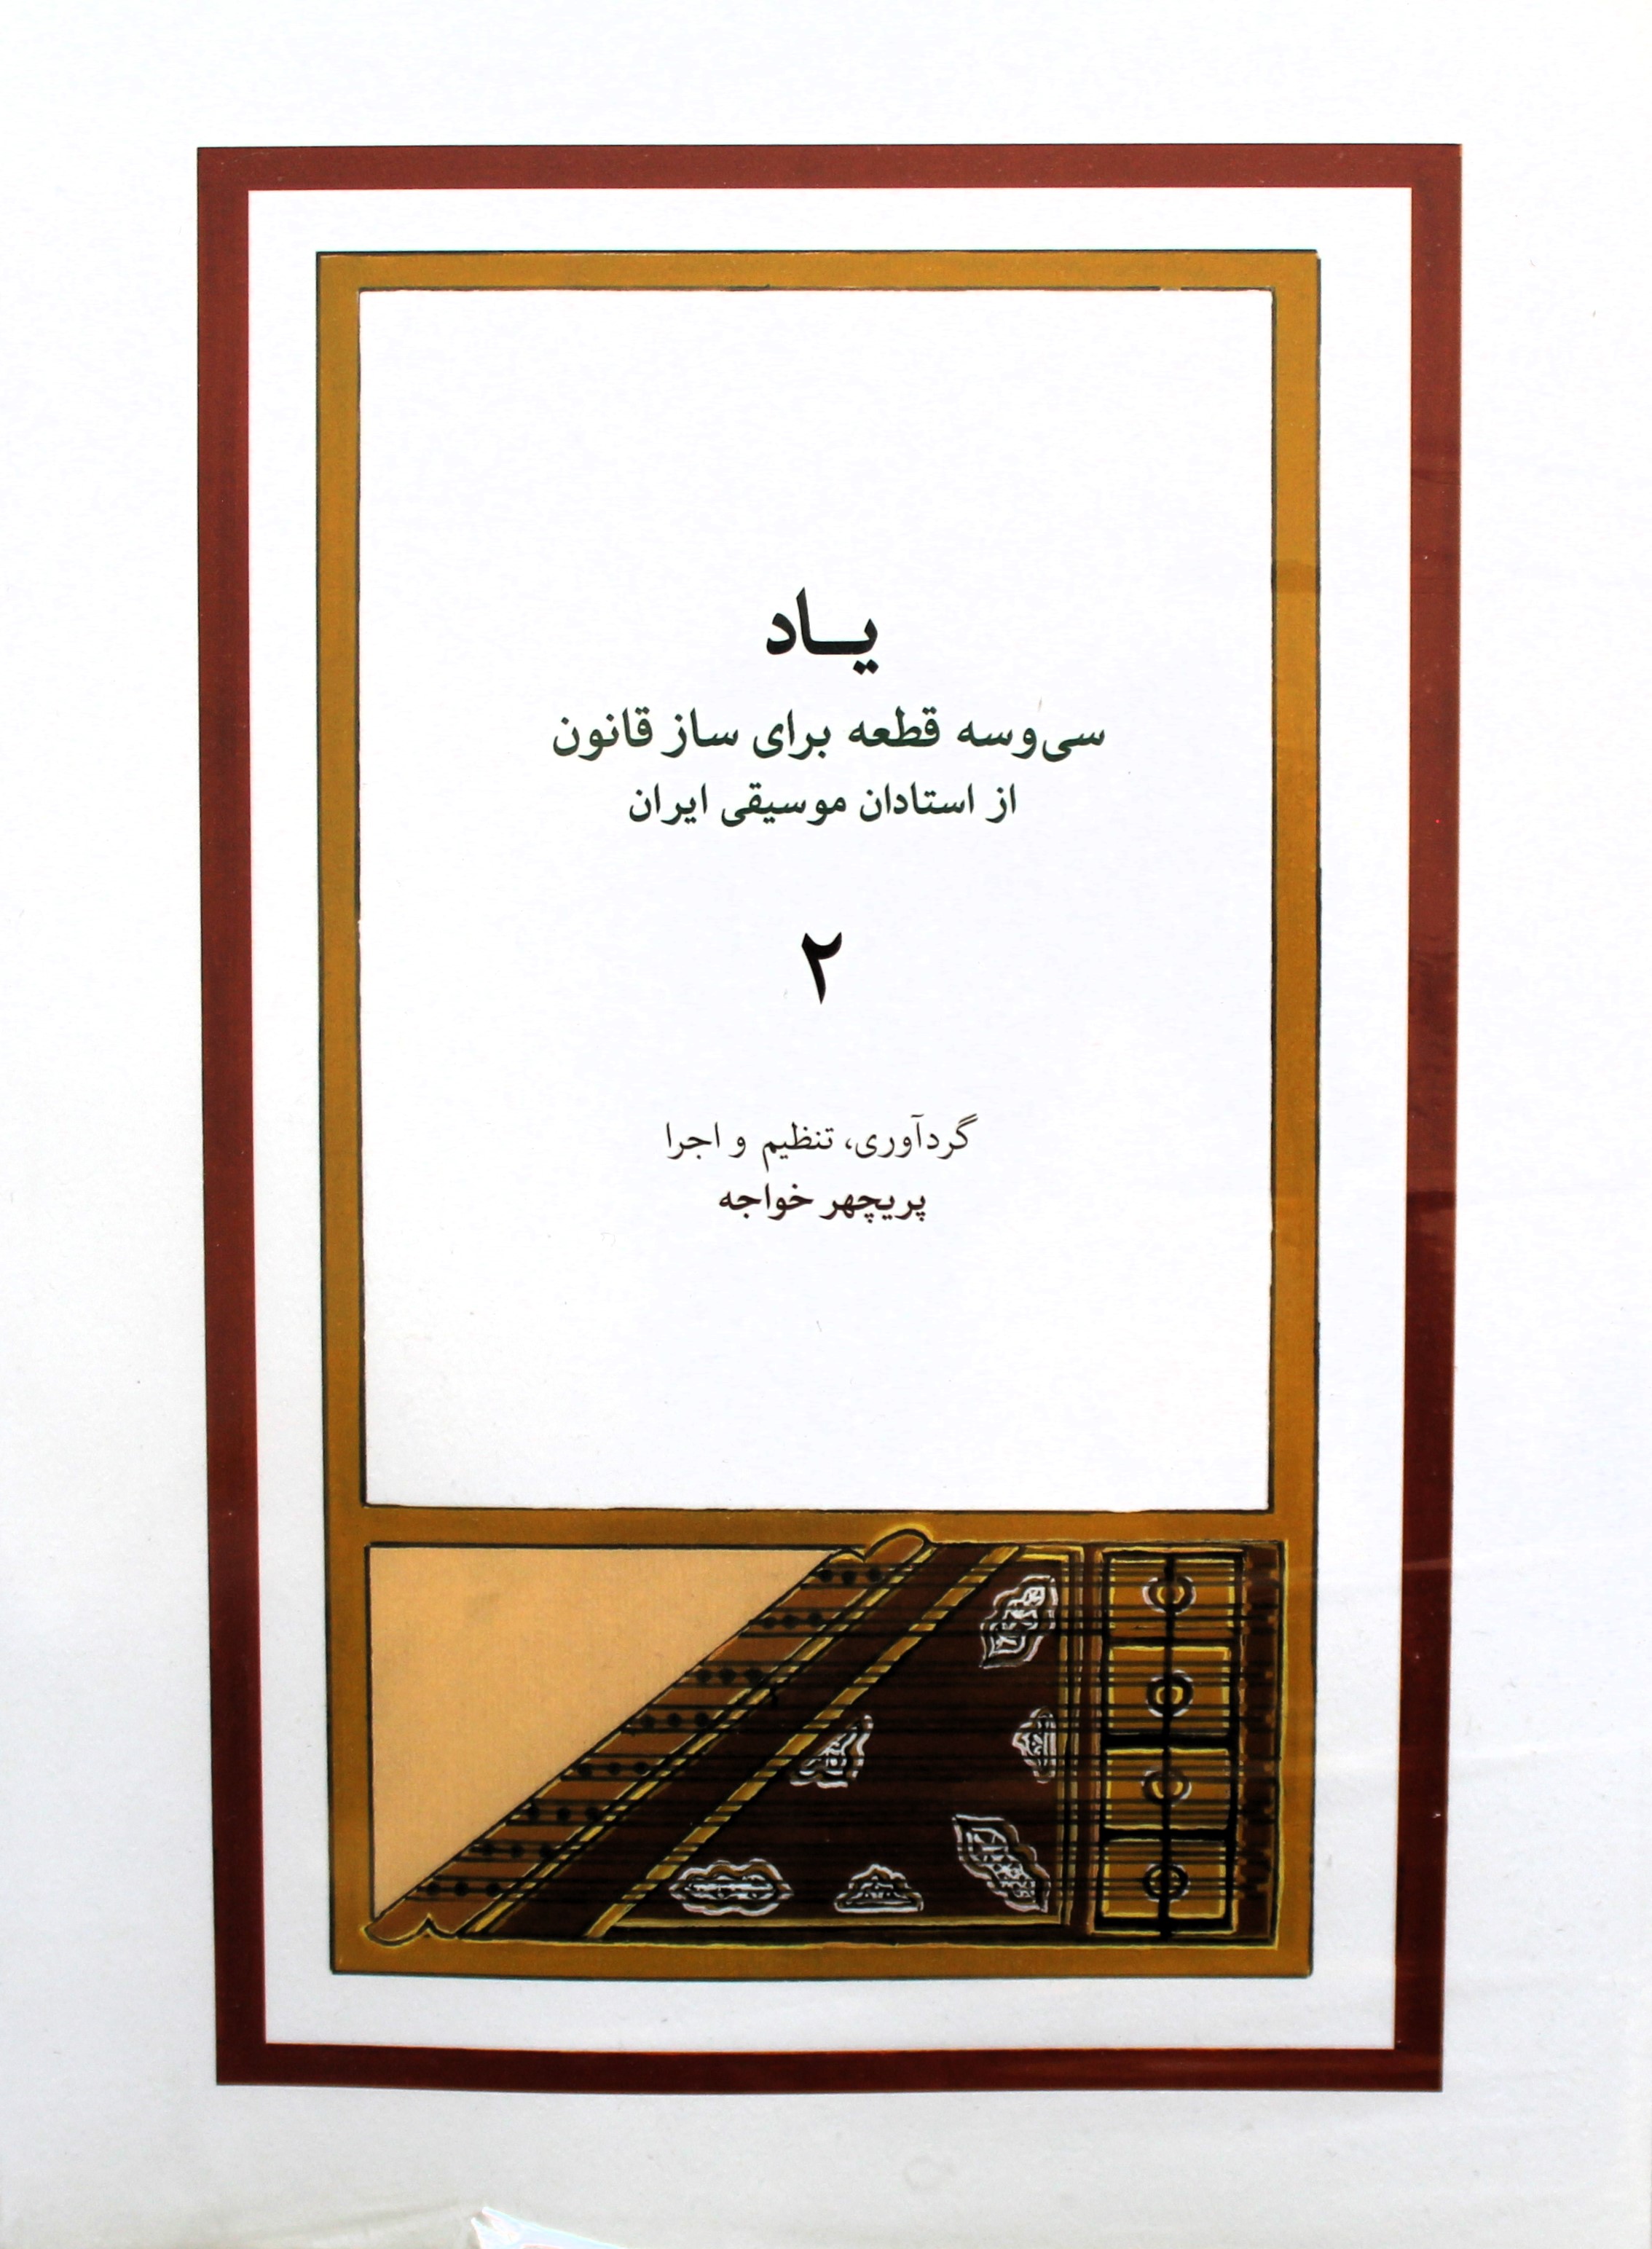 یاد
سی‌وسه قطعه برای ساز قانون
از استادان موسیقی ایران
۲
گردآوری، تنظیم و اجرا
پریچهر خواجه